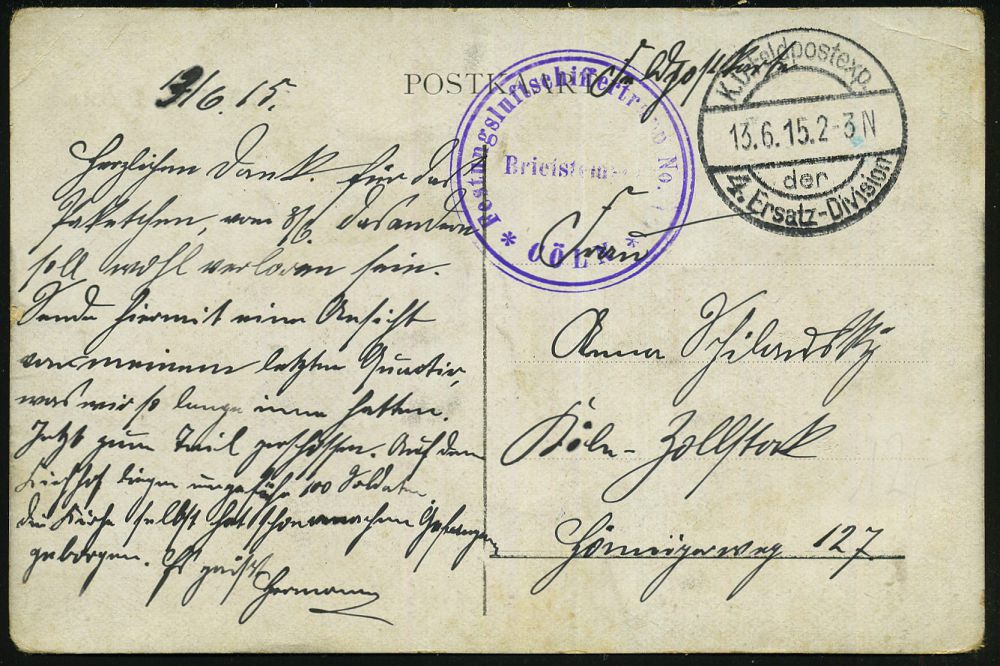 POSTKAART
Feldpostkarte
K.D. Feldpostexp.
13.6.15.2-3 N
der
4. Ersatz-Division
Festungsluftschiffertrupp No.
Briefstempel
* CÖLN *
9/6 15.
Herzlichen Dank. für das
Paketchen, vom 8/6. das andere
soll wohl verloren sein.
Sende hiermit eine Ansicht
von meinem letzten Quartir,
was wir so lange inne hatten.
Jetzt zum Teil zerschossen. Auf dem
Kirchhof liegen ungefähr 100 Soldaten
die Kirche selbst hat schon manchen Gefangenen
geborgen. Es grüßt
Hermann
Frau
Anna Schilawsky
Köln-Zollstock
Hönningerweg 127.